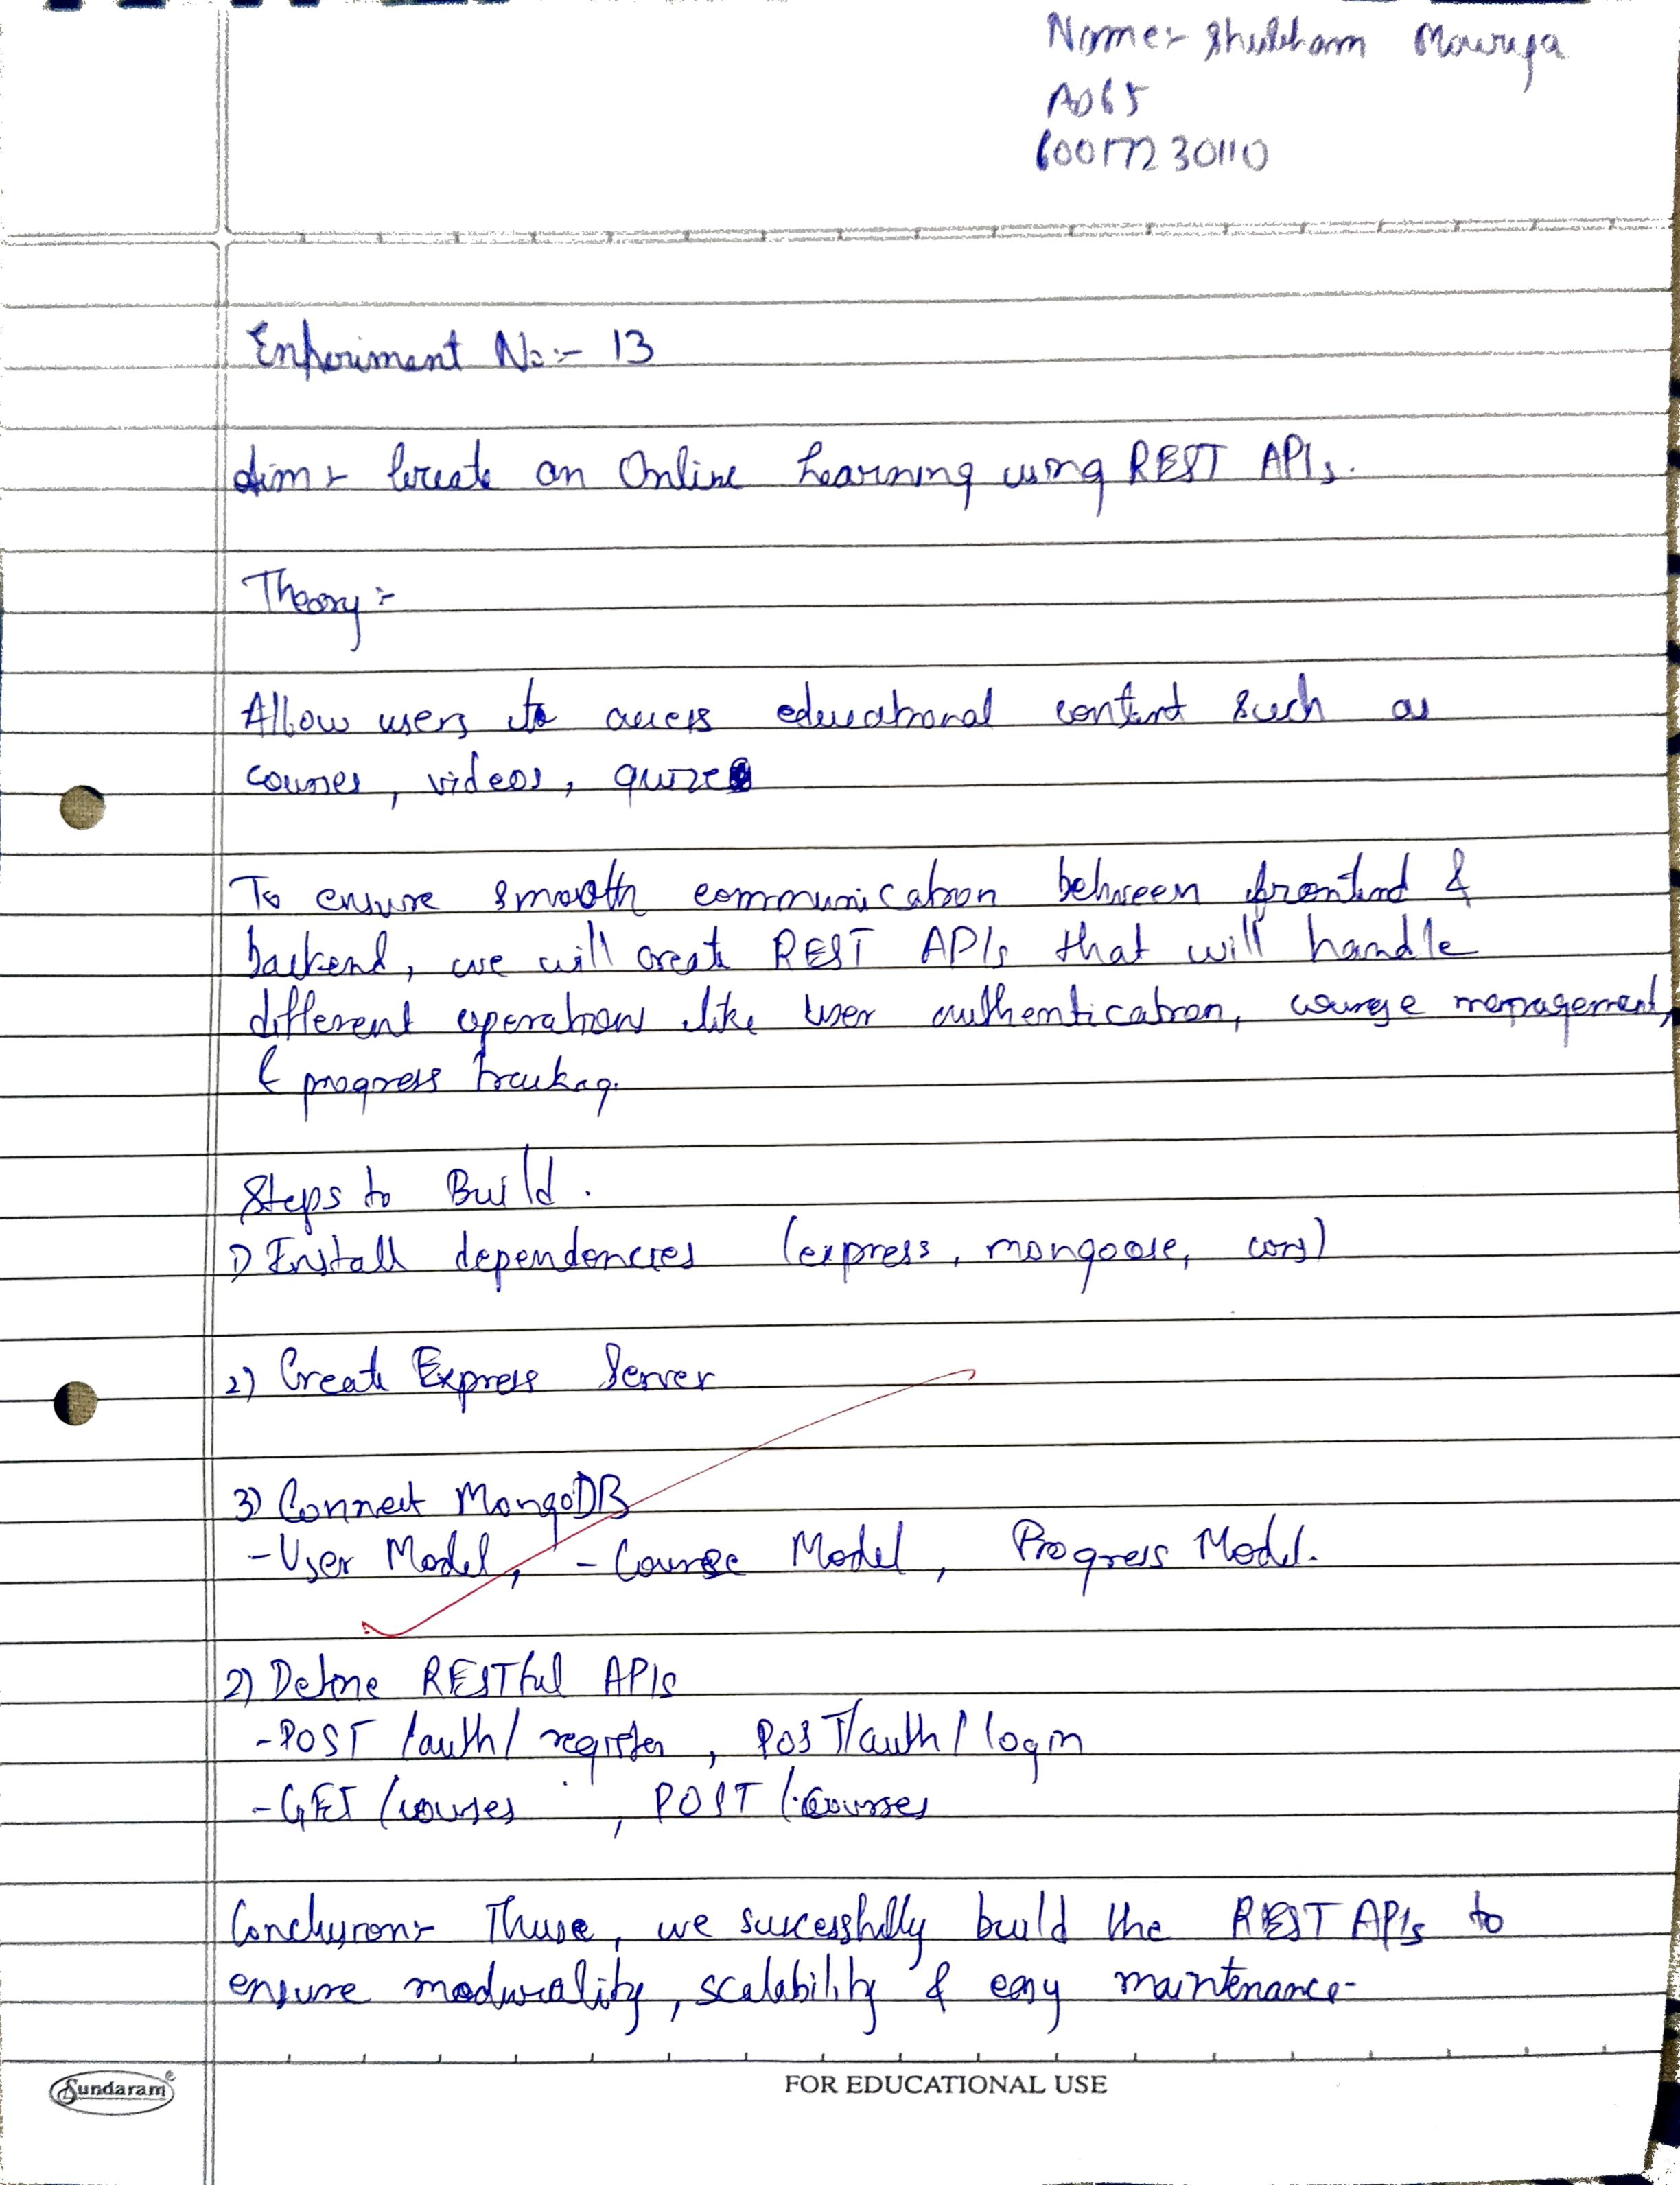 Name:- Shubham Mourya
A065
60017230110
Experiment No:- 13
Aim:- Create an Online Learning using REST APIs.
Theory :-
Allow users to access educational content such as
courses, videos, quizes
To ensure smooth communication between frontend &
backend, we will create REST APIs that will handle
different operations like user authentication, course management,
& progress tracking.
Steps to Build.
1) Install dependencies (express, mongoose, cors)
2) Create Express Server
3) Connect MongoDB
- User Model, - Course Model, Progress Model.
2) Define RESTful APIs
- POST /auth/ register, POST/auth/login
- GET /courses , POST /courses
Conclusion:- Thuse, we sucessfully build the REST APIs to
ensure modurality, scalability & easy maintenance-
Sundaram
FOR EDUCATIONAL USE